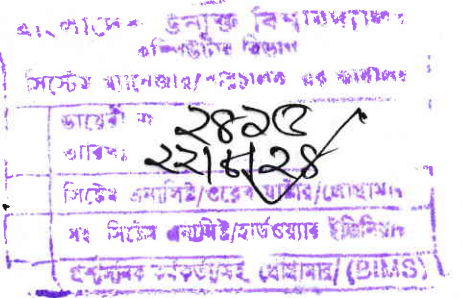 বাংলাদেশ উন্মুক্ত বিশ্ববিদ্যালয়
কম্পিউটার বিভাগ
সিস্টেম ম্যানেজার/ পরিচালক এর কার্যালয়
ডায়েরী নং ২৪৯৫
তারিখঃ ২২/৮/২৪
সিস্টেম এনালিষ্ট/ওয়েব মাস্টার/প্রোগ্রামার
সহ সিস্টেম এনালিষ্ট/হার্ডওয়্যার ইঞ্জিনিয়ার
প্রোগ্রামার/ (BIMS)